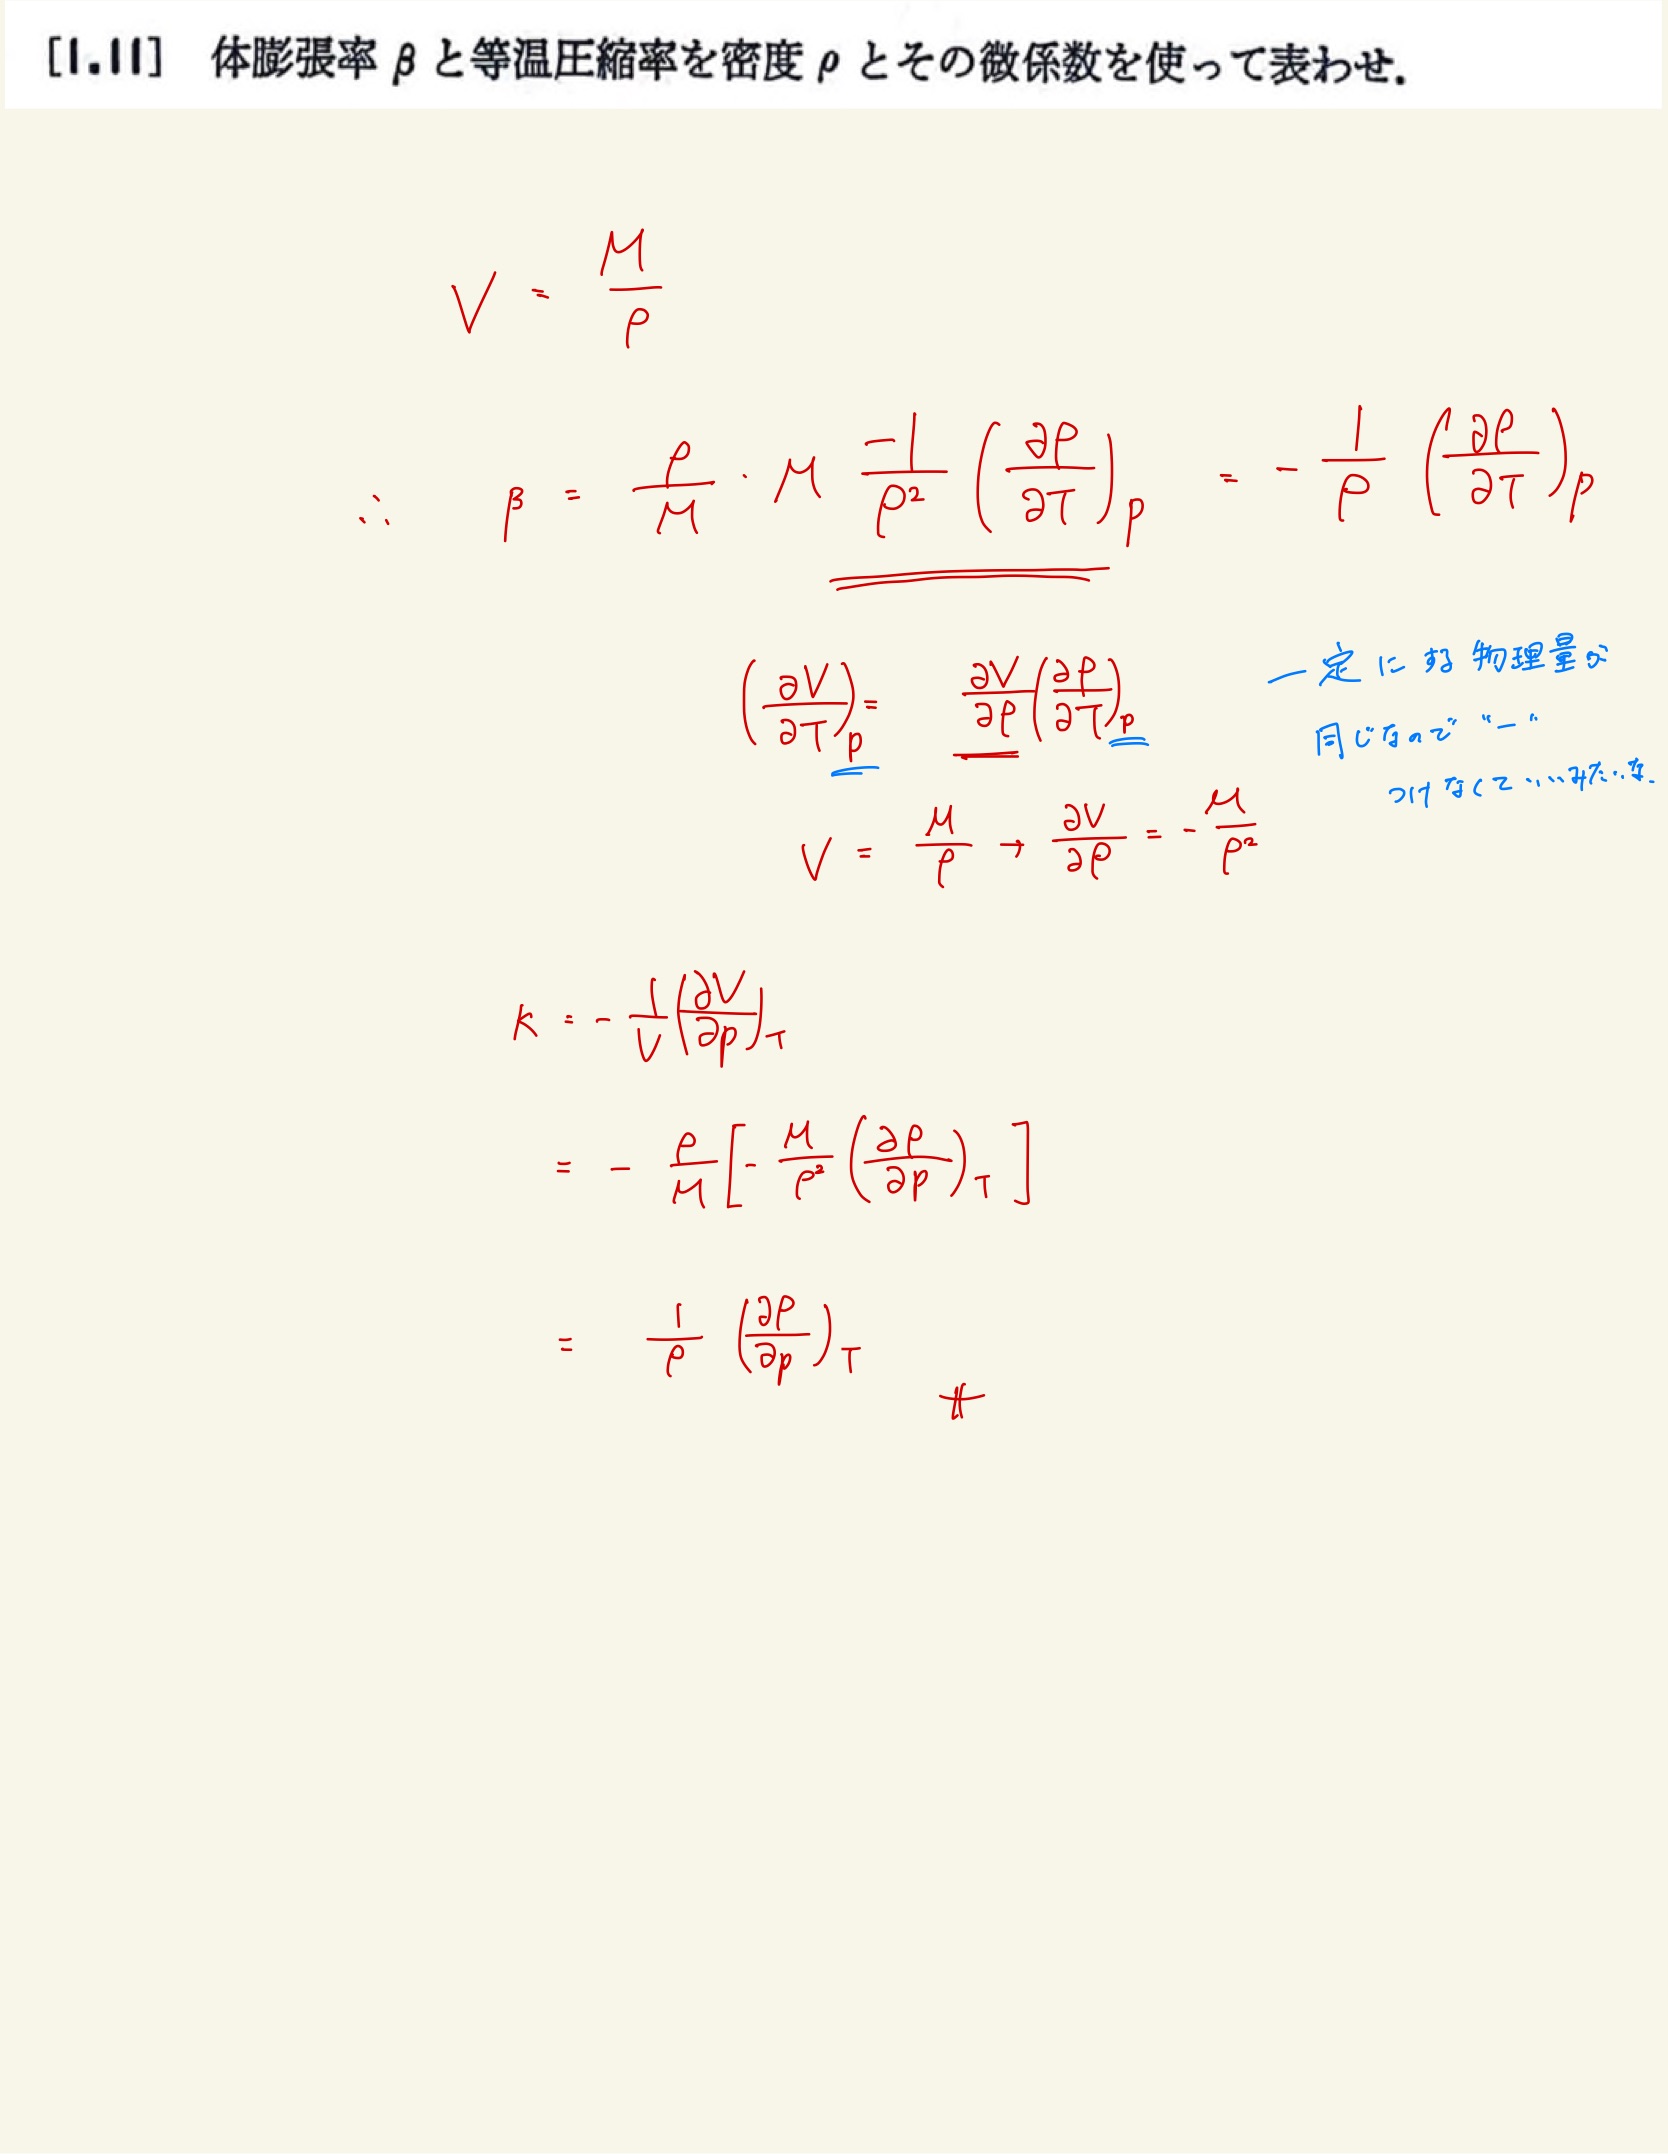 [1.11] 体膨張率 β と等温圧縮率を密度 ρ とその微係数を使って表わせ.
V = M/ρ
∴ β = ρ/M · M -1/ρ² (∂ρ/∂T)p = - 1/ρ (∂ρ/∂T)p
(∂V/∂T)p = ∂V/∂ρ (∂ρ/∂T)p
一定にする物理量が
同じなので "ー"
つけなくていいみたいな.
V = M/ρ → ∂V/∂ρ = - M/ρ²
K = - 1/V (∂V/∂p)T
= - ρ/M [- M/ρ² (∂ρ/∂p)T]
= 1/ρ (∂ρ/∂p)T